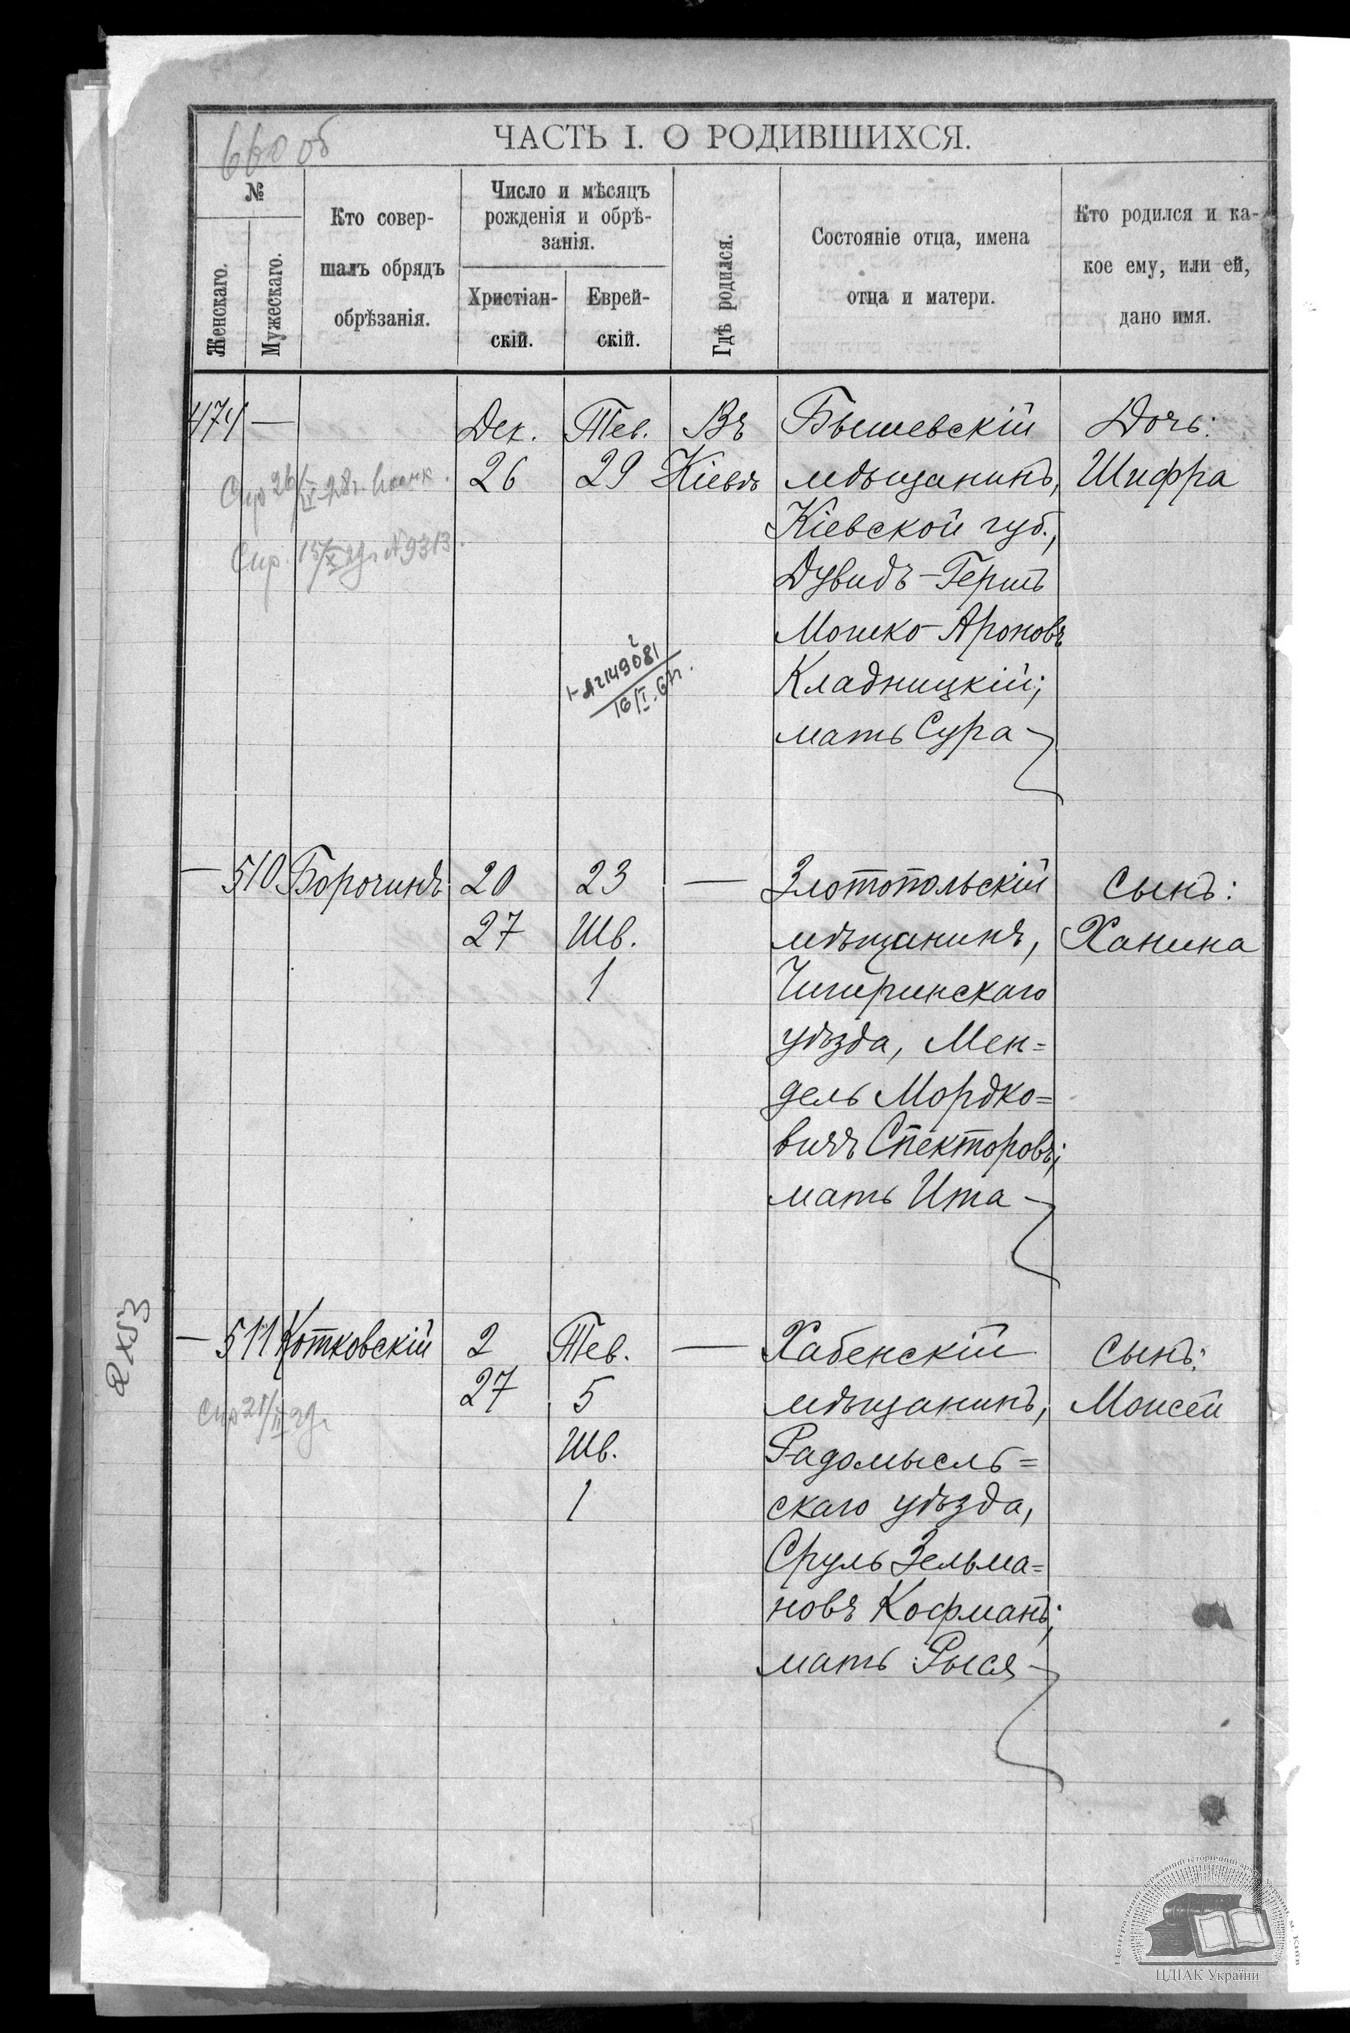 660 об
ЧАСТЬ I. О РОДИВШИХСЯ.
№
Женскаго.
Мужескаго.
Кто совер-
шалъ обрядъ
обрѣзанія.
Число и мѣсяцъ
рожденія и обрѣ-
занія.
Христіан-
скій.
Еврей-
скій.
Гдѣ родился.
Состояніе отца, имена
отца и матери.
Кто родился и ка-
кое ему, или ей,
дано имя.
474 —
Дек.
26
Тев.
29
Въ
Кіевѣ
Бышевскій
мѣщанинъ,
Кіевской губ.,
Дувидъ-Гершъ
Мошко-Ароновъ
Кладницкій;
мать Сура
Дочь:
Шифра
Спр. 15/X 29г. №9313.
16/I.67г.
— 510
Борочинъ
20
27
23
Шв.
1
—
Златопольскій
мѣщанинъ,
Чигиринскаго
уѣзда, Мен=
дель Мордко=
вичъ Спекторовъ;
мать Ита
сынъ:
Ханина
— 511
Котковскій
2
27
Тев.
5
Шв.
1
—
Хабенскій
мѣщанинъ,
Радомысль=
скаго уѣзда,
Сруль Зельма=
новъ Кофманъ;
мать Рыся
сынъ:
Моисей
ЦДІАК України